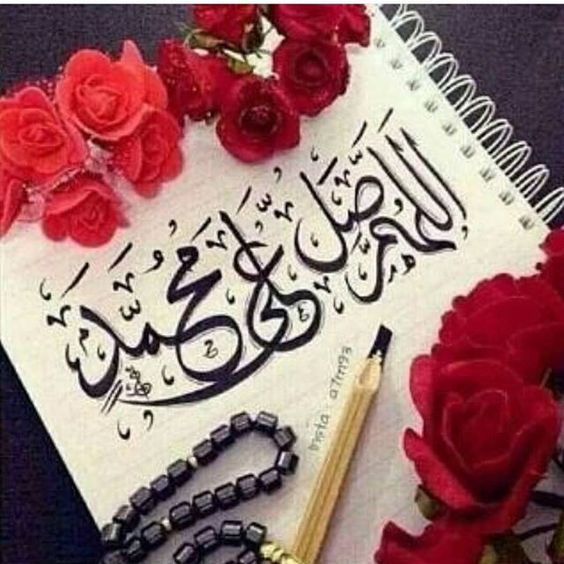 اللهم صَلِّ على محمد
insta : a7m93